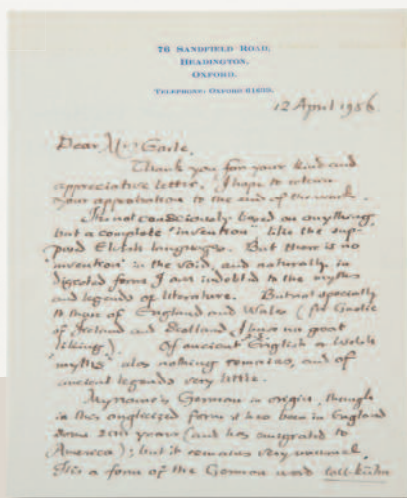 76 SANDFIELD ROAD,
HEADINGTON,
OXFORD.
TELEPHONE: OXFORD 61639.
12 April 1956
Dear Mr Gaile,
Thank you for your kind and
appreciative letter. I hope to retain
your approbation to the end of the work.
It is not consciously based on anything,
but a complete "invention" like the sup-
posed Elvish languages. But there is no
"invention" in the void, and naturally in
digested form I am indebted to the myths
and legends of literature. But not specially
to those of England and Wales (for Gaelic
of Ireland and Scotland I have no great
liking). Of ancient English or Welsh
"myths" alas nothing remains, and of
ancient legends very little.
My name is German in origin, though
in this anglicized form it has been in England
some 200 years (and has emigrated to
America); but it remains very unusual.
It is a form of the German word toll-kühn